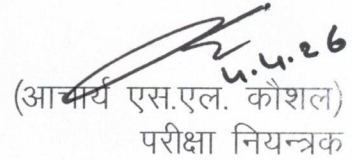 4.4.26
(आचार्य एस.एल. कौशल)
परीक्षा नियन्त्रक